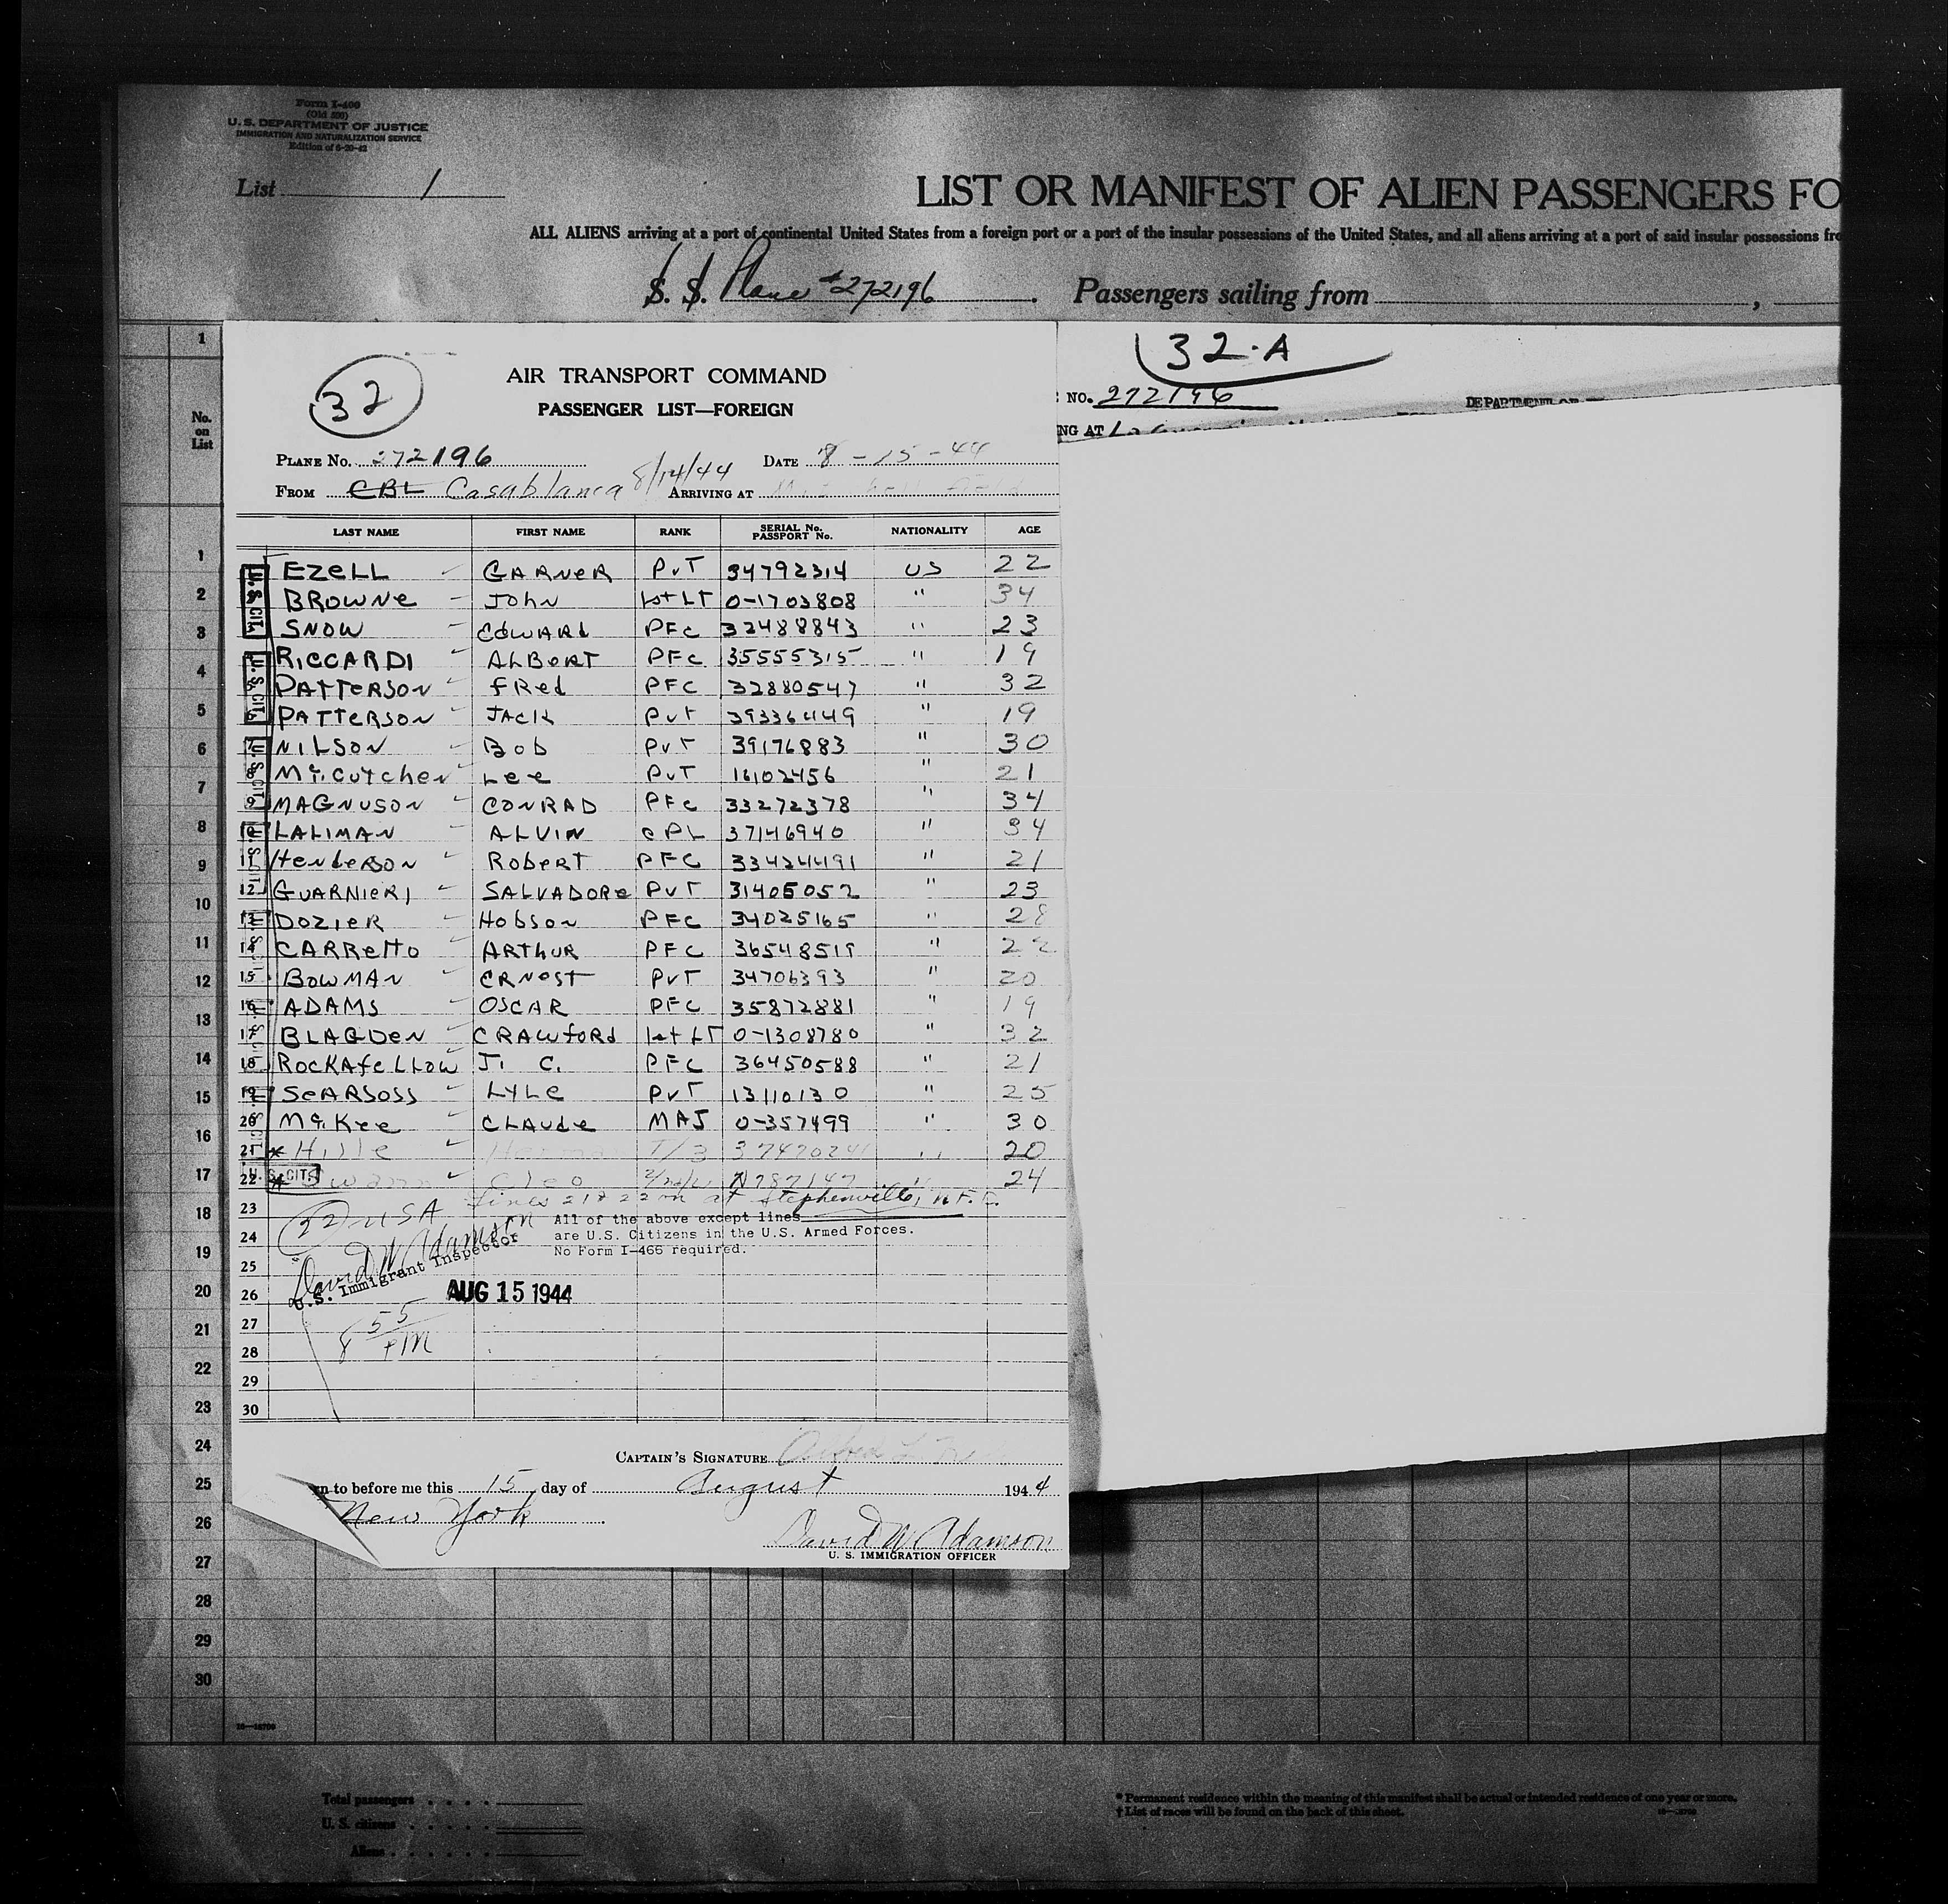 Form I-400
(Old 500)
U. S. DEPARTMENT OF JUSTICE
IMMIGRATION AND NATURALIZATION SERVICE
Edition of 6-20-42
List 1
LIST OR MANIFEST OF ALIEN PASSENGERS FO
ALL ALIENS arriving at a port of continental United States from a foreign port or a port of the insular possessions of the United States, and all aliens arriving at a port of said insular possessions fro
S. S. Plane #272196. Passengers sailing from ,
No. on List
32
AIR TRANSPORT COMMAND
PASSENGER LIST—FOREIGN
PLANE NO. 272196 DATE 8-15-44
FROM CBL Casablanca 8/14/44 ARRIVING AT
32-A
NO. 272196
NG AT
LAST NAME FIRST NAME RANK SERIAL No. PASSPORT No. NATIONALITY AGE
1 EZELL GARNER PVT 34792314 US 22
2 BROWNE John 1st LT 0-1703808 " 34
3 SNOW EDWARD PFC 32488843 " 23
4 RICCARDI ALBERT PFC 35555315 " 19
5 PATTERSON FRED PFC 32880547 " 32
6 PATTERSON JACK PVT 39336449 " 19
7 NILSON Bob PVT 39176883 " 30
8 McCutchen Lee PVT 16102456 " 21
9 MAGNUSON CONRAD PFC 33272378 " 34
10 LALIMAN ALVIN CPL 37146940 " 34
11 HENDERSON ROBERT PFC 33424491 " 21
12 GUARNIERI SALVADORE PVT 31405052 " 23
13 DOZIER HOBSON PFC 34025165 " 28
14 CARRETTO ARTHUR PFC 36548511 " 22
15 BOWMAN ERNEST PVT 34706393 " 20
16 ADAMS OSCAR PFC 35872881 " 19
17 BLAGDEN CRAWFORD 1st LT 0-1308780 " 32
18 ROCKAFELLOW J. C. PFC 36450588 " 21
19 SEARSOSS LYLE PVT 13110130 " 25
20 McKee CLAUDE MAJ 0-357499 " 30
21 * Hille T/3 37470241 " 20
22 * Swann Cleo N787147 " 24
U. S. CIT.
23 Lines 21 & 22 on at Stephenville, N.F.
22 USA
24 All of the above except lines
are U.S. Citizens in the U.S. Armed Forces.
No Form I-466 required.
David W Adamson
U.S. Immigrant Inspector
25
26 AUG 15 1944
27 8 55 PM
28
29
30
CAPTAIN'S SIGNATURE
n to before me this 15 day of August 1944
New York
David W Adamson
U. S. IMMIGRATION OFFICER
1
2
3
4
5
6
7
8
9
10
11
12
13
14
15
16
17
18
19
20
21
22
23
24
25
26
27
28
29
30
Total passengers
U. S. citizens
Aliens
* Permanent residence within the meaning of this manifest shall be actual or intended residence of one year or more.
† List of races will be found on the back of this sheet.